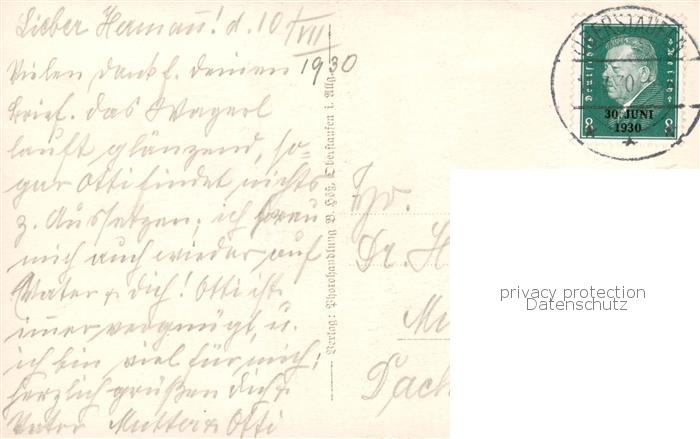 Lieber Hermann! d. 10/VII
1930
Vielen Dank f. deinen
Brief. Das Wagerl
lauft glänzend, so-
gar Otti findet nichts
z. Aussetzen; ich freu
mich auch wieder auf
Vater & dich! Otti ist
immer vergnügt, u.
ich bin viel für mich;
herzlich grüßen dich
Vater Mutter & Otti
Verlag: Photohandlung B. Höß, Oberstaufen i. Allg.
OBERSTAUFEN
Deutsches Reich
30. JUNI
1930
8 8
Dr. H
privacy protection
Datenschutz